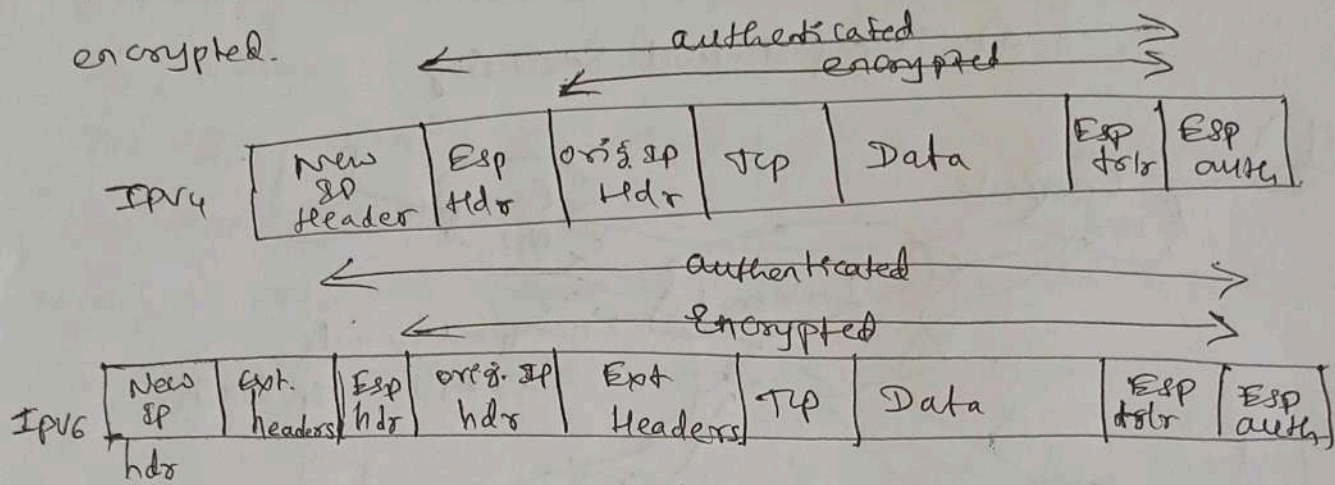 encrypted.
authenticated
encrypted
IPV4 New IP Header ESP Hdr orig. IP Hdr TCP Data ESP trlr ESP auth
authenticated
Encrypted
IPV6 New IP hdr Ext. headers ESP hdr orig. IP hdr Ext Headers TCP Data ESP trlr ESP auth